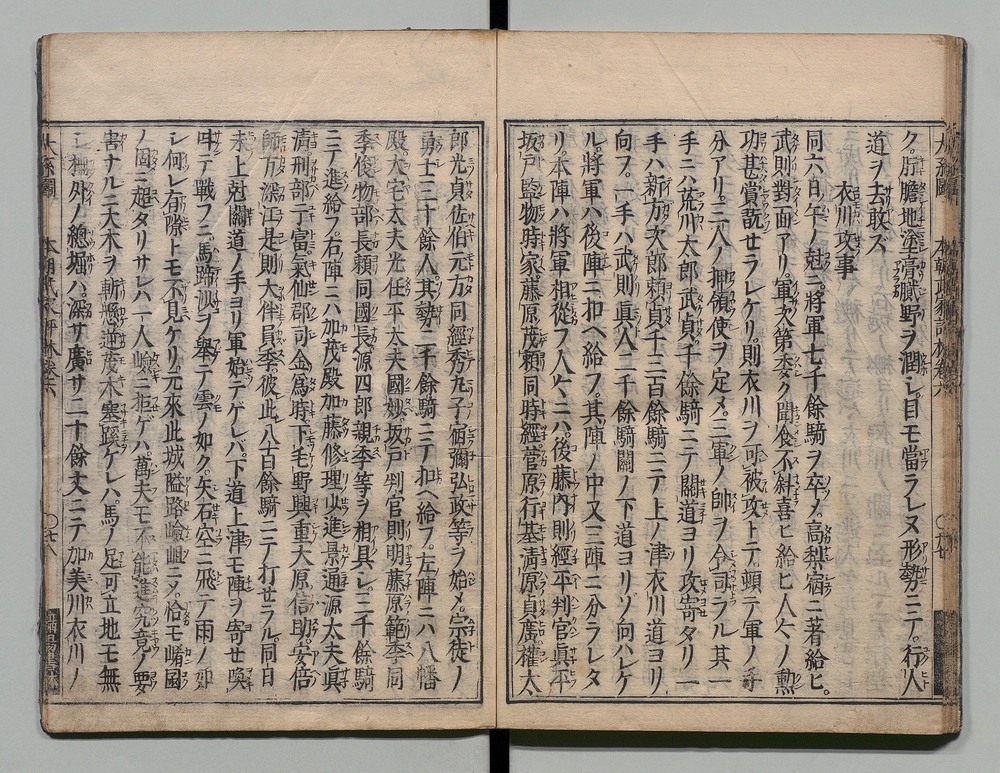 ク。肝膽地塗膏膩野ヲ潤シ。目モ當ラレヌ形勢ニテ。行人
道ヲ去敢ズ
衣川攻事
同六日午ノ尅ニ。將軍七千餘騎ヲ卒メ。高梨宿ニ著給ヒ。
武則對面アリ。軍ノ次第委ク聞食不斜喜ヒ給ヒ人々ノ勲
功甚賞翫セラレケリ。則衣川ヲ可被攻トテ。頭テ軍ノ手
分アリ。二人ノ押領使ヲ定メ。三軍ノ帥ヲ令司ラル其一
手ニハ荒川太郎武貞。千餘騎ニテ關道ヨリ攻寄タリ一
手ハ新方次郎頼貞千三百餘騎ニテ上ノ津衣川道ヨリ
向フ。一手ハ武則眞人二千餘騎關ノ下道ヨリゾ向ハレケ
ル。將軍ハ後陣ニ扣ヘ給フ。其陣ノ中又三陣ニ分ラレタ
リ本陣ハ將軍相從フ人々ニハ。後藤内則經平判官眞平
坂戸監物時家。藤原茂頼同時經。菅原行基淸原貞廣權太
郎光貞佐伯元方同經秀九子宿彌弘政等ヲ始メ。宗徒ノ
勇士三十餘人。其勢二千餘騎ニテ扣ヘ給フ。左陣ニハ八幡
殿大宅太夫光任平太夫國妙坂戸判官則明藤原範季同
季俊物部長頼同國長源四郎親季等ヲ相具シ。二千餘騎
ニテ進給フ。右陣ニハ加茂殿加藤修理少進景通源太夫眞
淸刑部丁富。氣仙郡司金爲時下毛野興重大原信助。安倍
師方深江是則大伴員季。彼此八百餘騎ニテ打セラル。同日
未上尅關道ノ手ヨリ軍始テゲレバ。下道上津モ陣ヲ寄セ喚
叫テ戰フニ。馬蹄沙ヲ擧テ雲ノ如ク。矢石空ニ飛テ雨ノ如
シ何レ有隙トモ不見ケリ。元來此城隘路嶮岨ニメ。恰モ崤凾
ノ固ニ超タリサレハ一人嶮ニ拒ゲハ。萬夫モ不能進究竟ノ要
害ナルニ大木ヲ斬懸逆茂木塞蹊ケレハ。馬ノ足可立地モ無
シ。柵外ノ總堀ハ。深サ廣サ二十餘丈ニテ加美川衣川ノ